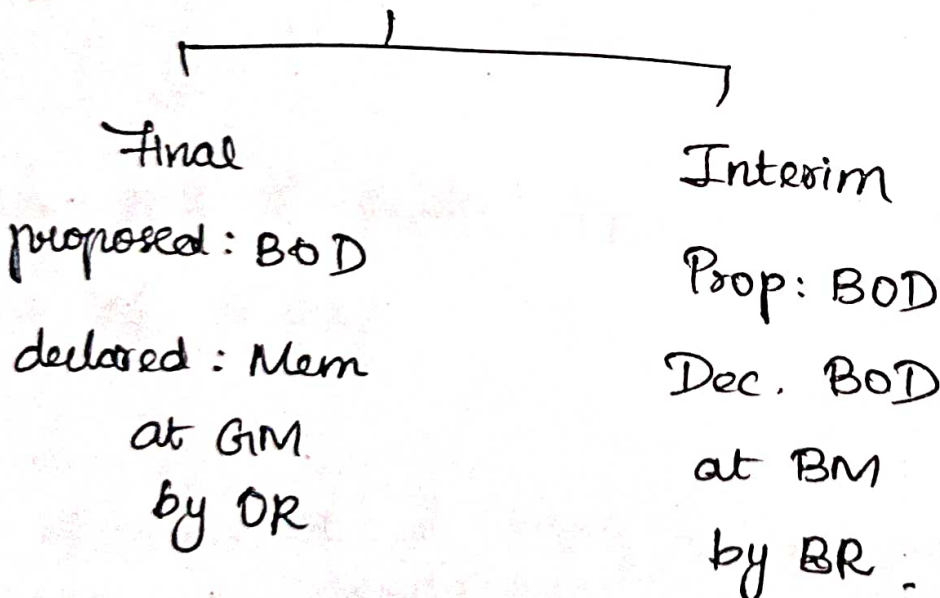 Final
proposed : BOD
declared : Mem
at GM
by OR
Interim
Prop: BOD
Dec. BOD
at BM
by BR.